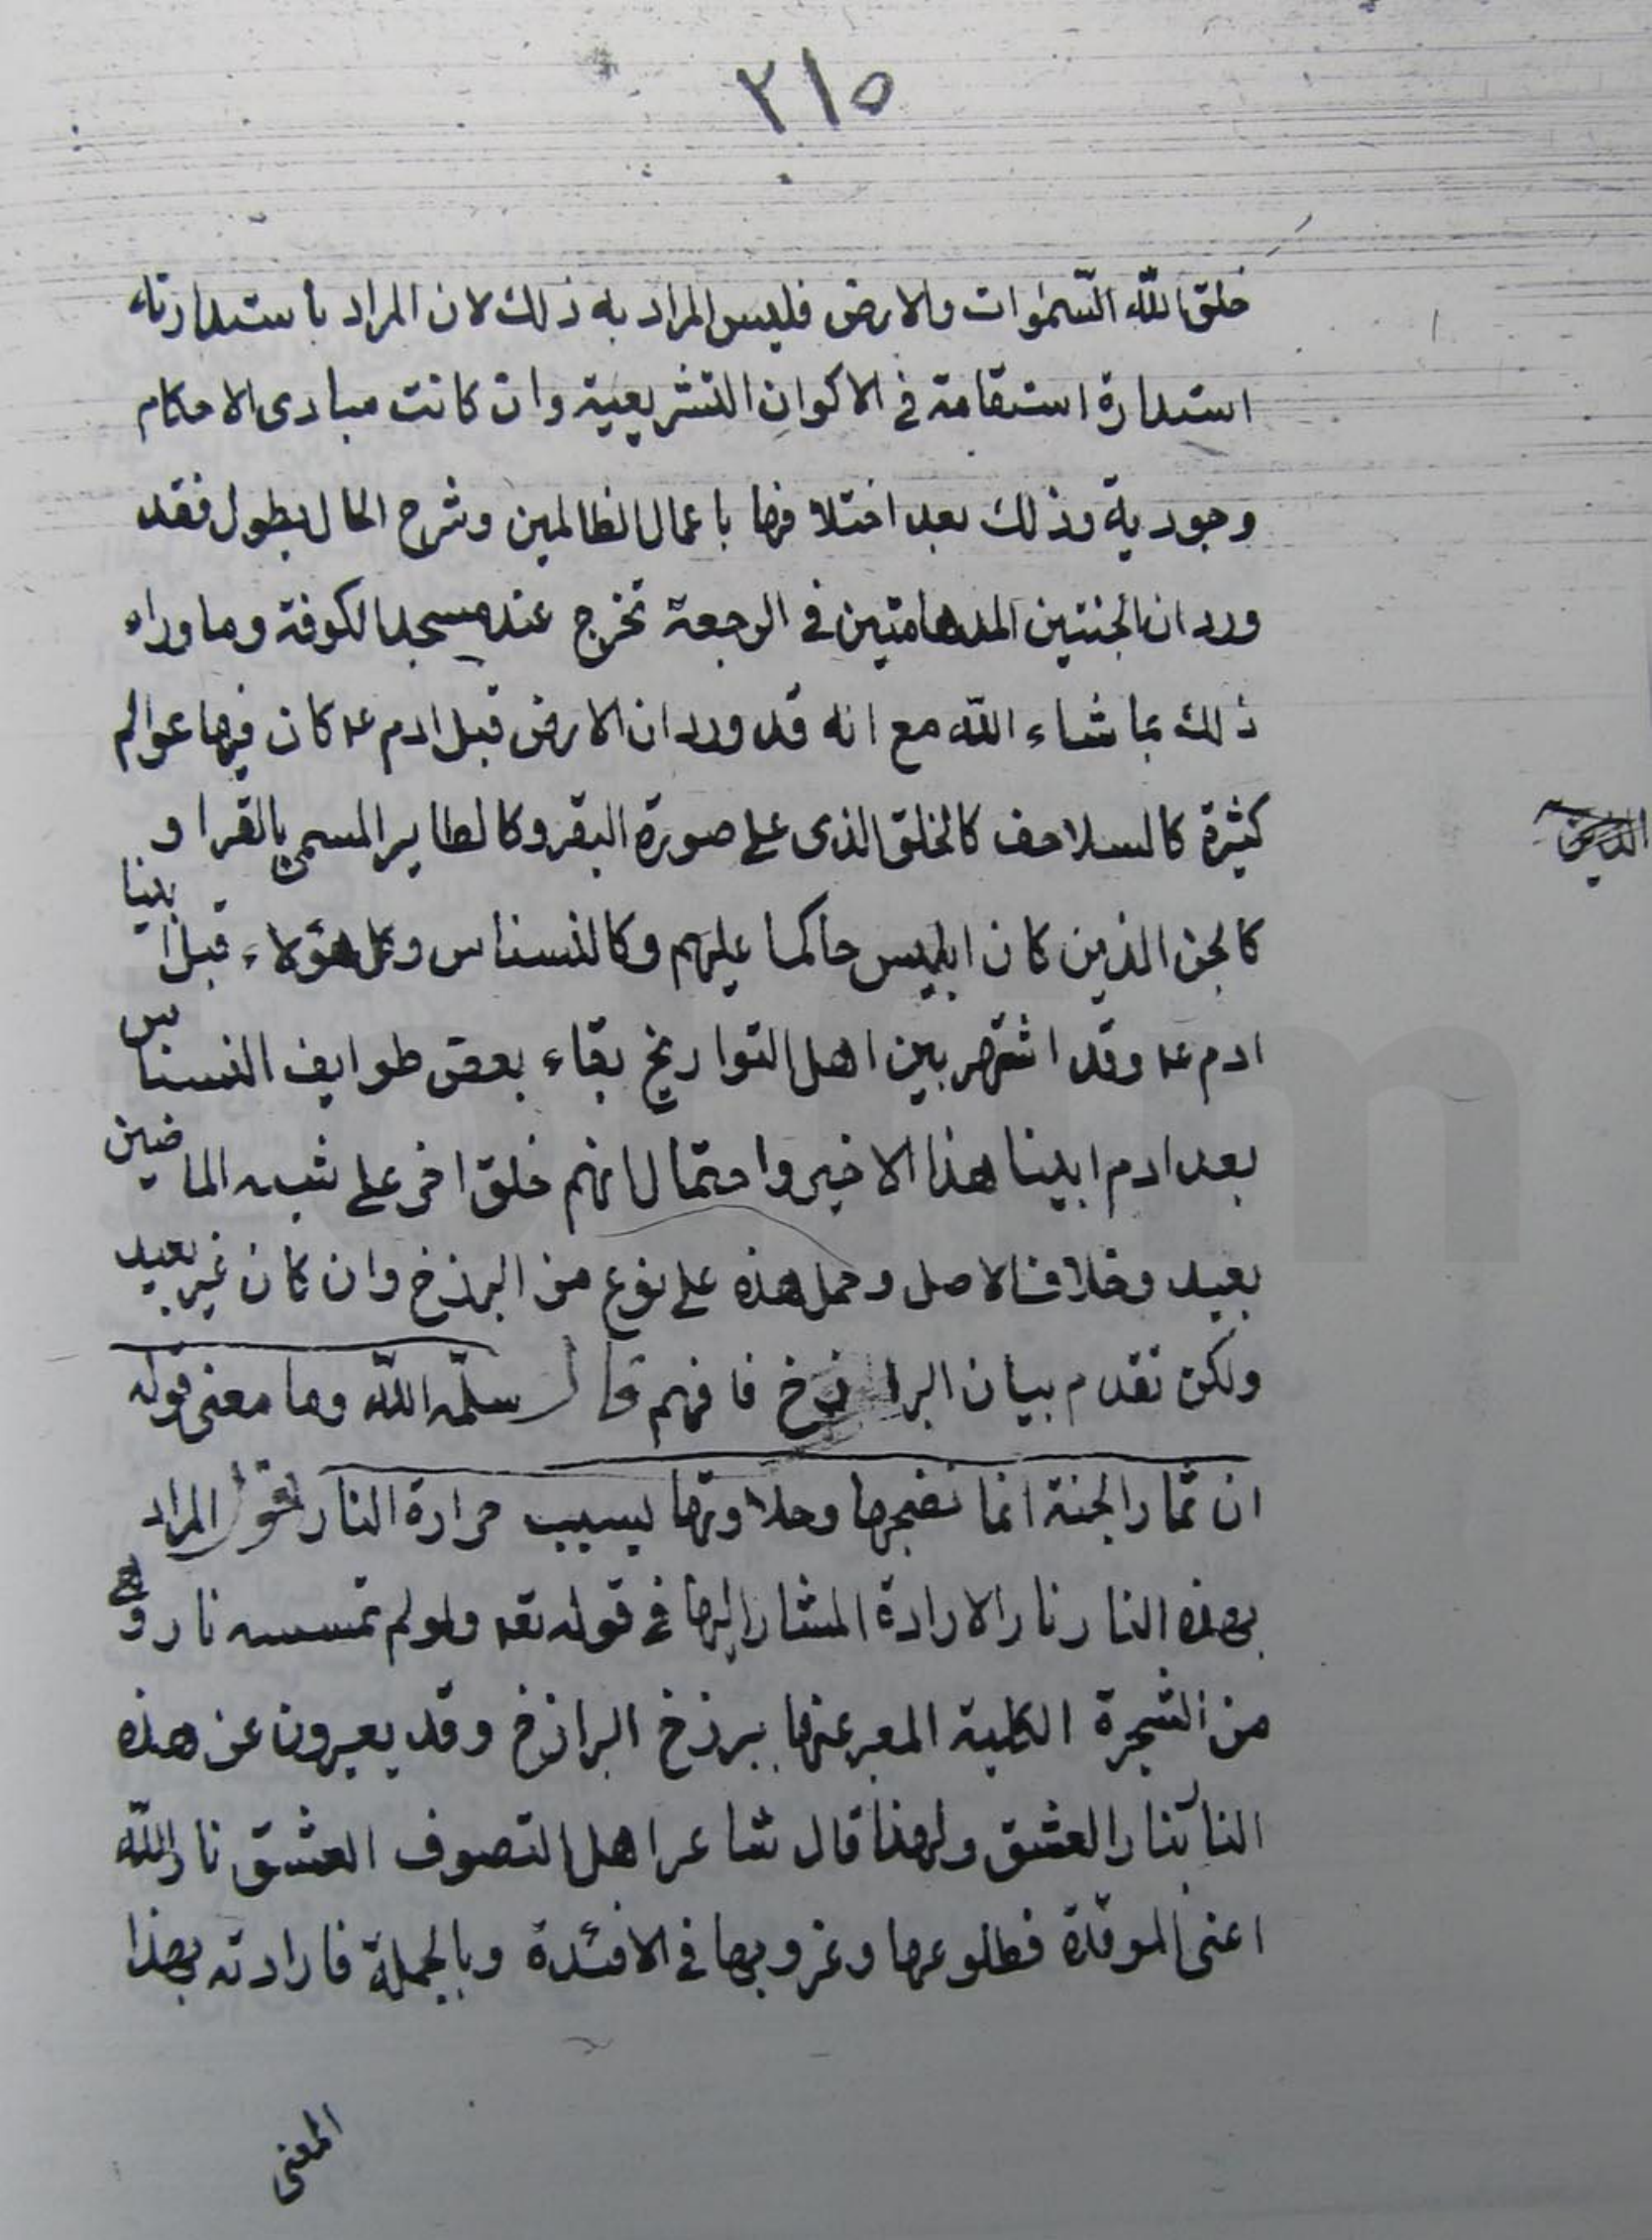 ٢١٥
خلق الله السّموات والارض فليس المراد به ذلك لان المراد باستدارته
استدارة استقامة في الاكوان التشريعية وان كانت مبادى الاحكام
وجودية وذلك بعد اختلافها باعمال الظالمين وشرح الحال يطول فقد
ورد ان الجنتين المدهامتين في الرجعة تخرج عند مسجد الكوفة وما وراء
ذلك بما شاء الله مع انه قد ورد ان الارض قبل ادم ع كان فيها عوالم
كثيرة كالسلاحف كالخلق الذى على صورة البقر وكالطاير المسمى بالقرا و
كالجن الذين كان ابليس حاكما عليهم وكالنسناس وكل هؤلاء قبل ابينا
ادم ع وقد اشتهر بين اهل التواريخ بقاء بعض طوايف النسناس
بعد ادم ابينا هذا الاخير واحتمال انهم خلق اخر على شبه الماضين
بعيد وخلاف الاصل وحمل هذه على نوع من البرزخ وان كان غير بعيد
ولكن تقدم بيان البرازخ فافهم قال سلّمه الله وما معنى قوله
ان ثمار الجنة انما نضجها وحلاوتها بسبب حرارة النار اقول المراد
بهذه النار نار الارادة المشار اليها في قوله تعه ولو لم تمسسه نار و
من الشجرة الكلية المعبر عنها ببرزخ البرازخ وقد يعبرون عن هذه
النار بنار العشق ولهذا قال شاعر اهل التصوف العشق نار الله
اعنى الموقدة فطلوعها وغروبها في الافئدة وبالجملة فارادته بهذا
المعنى